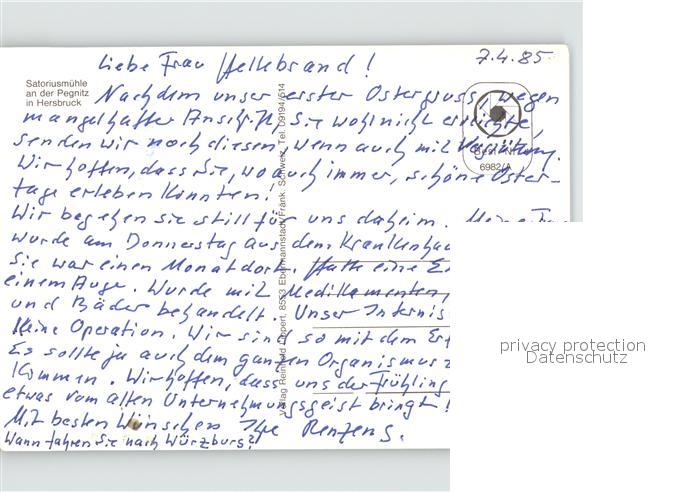 7.4.85
Liebe Frau Hellebrand!
Satoriusmühle
an der Pegnitz
in Hersbruck
Nachdem unser erster Ostergruss, wegen
mangelhafter Anschrift, Sie wohl nicht erreichte,
senden wir noch diesen, wenn auch mit Verspätung.
Wir hoffen, dass Sie, wo auch immer, schöne Oster-
tage erleben konnten!
Wir begehen sie still für uns daheim. Meine Frau
wurde am Donnerstag aus dem Krankenhau
Sie war einen Monat dort. Hatte eine
einem Auge. Wurde mit Medikamenten,
und Bäder behandelt. Unser Internis
keine Operation. Wir sind so mit dem
Es sollte ja auch dem ganzen Organismus
kommen. Wir hoffen, dass uns der Frühling
etwas vom alten Unternehmungsgeist bringt!
Mit besten Wünschen Ihre Renzens.
Wann fahren Sie nach Würzburg?
Verlag Reinhold Lippert, 8553 Ebermannstadt/Fränk. Schweiz, Tel. 09194/614
Best.-Nr.
6982/A
privacy protection
Datenschutz